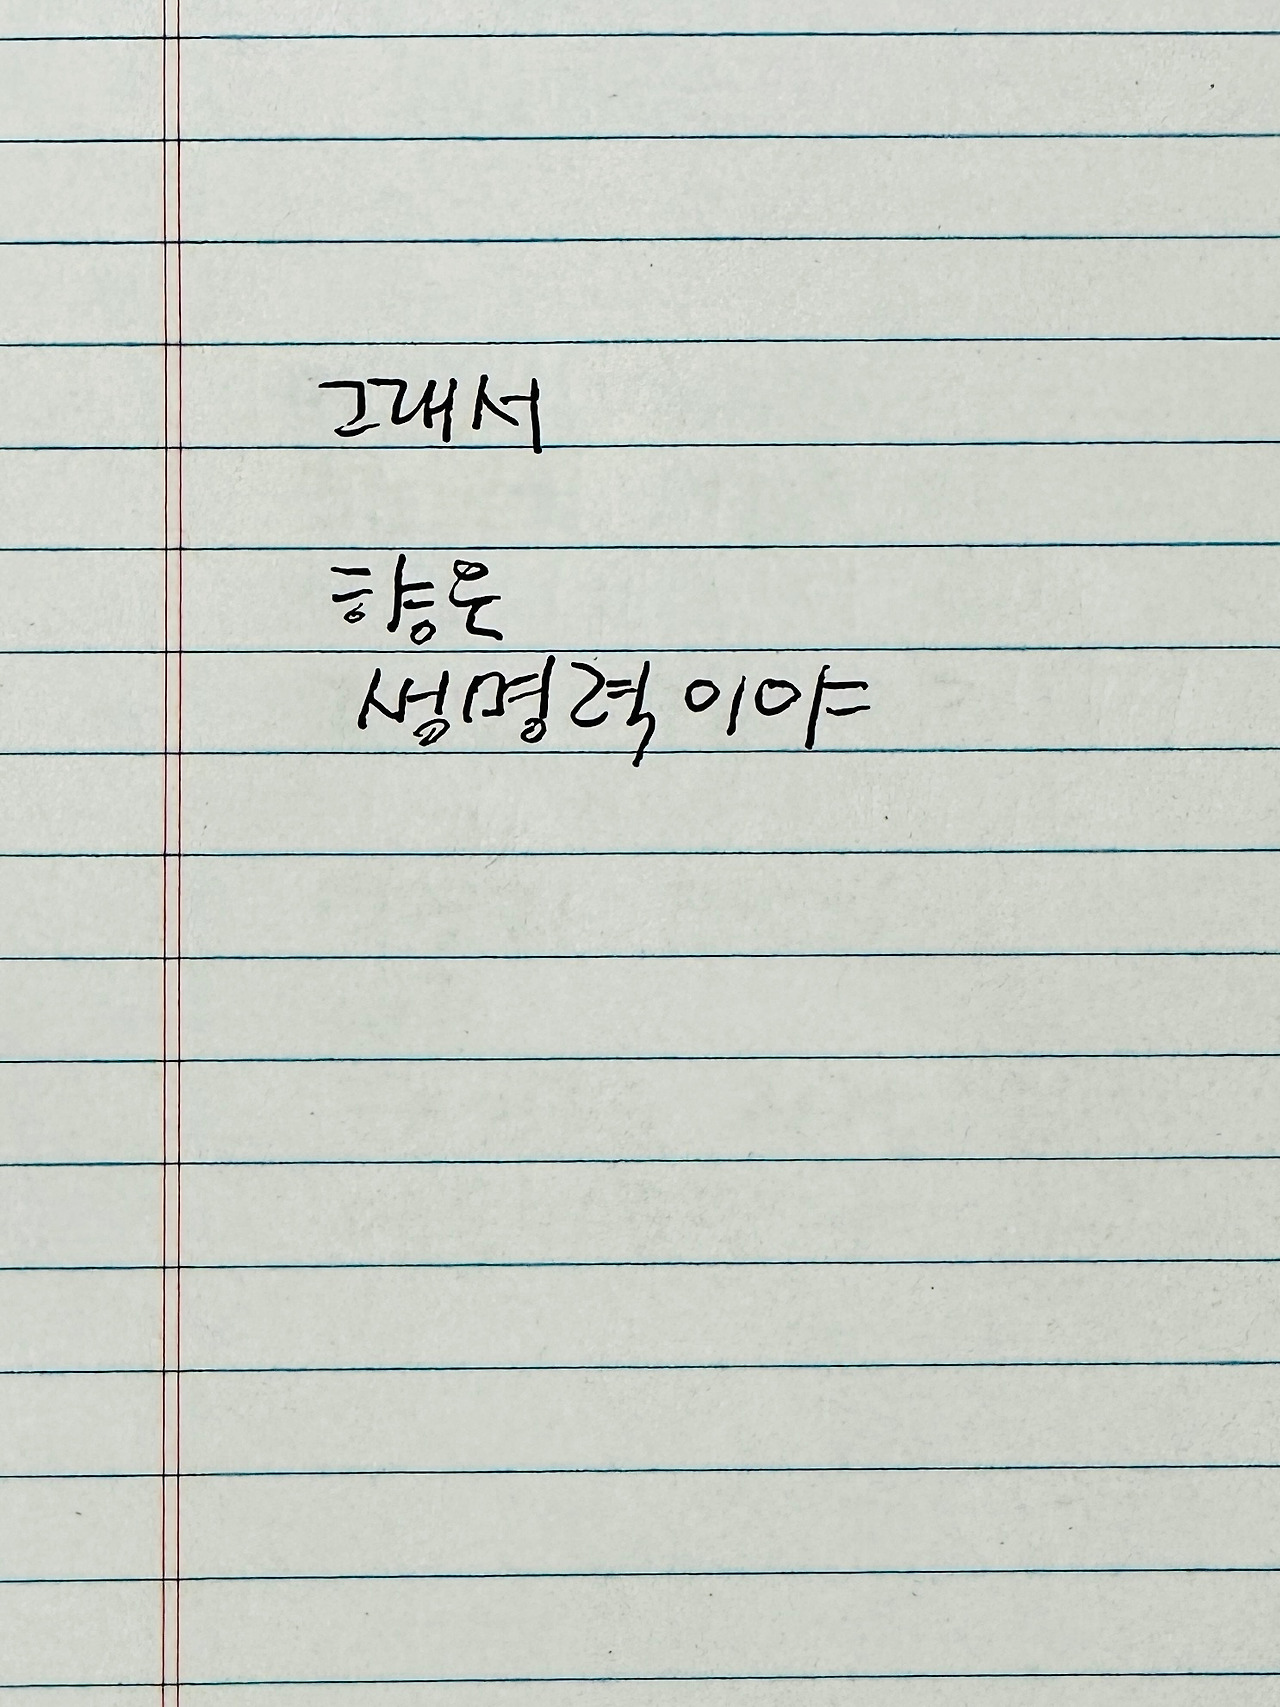 그래서
향은
생명력이야